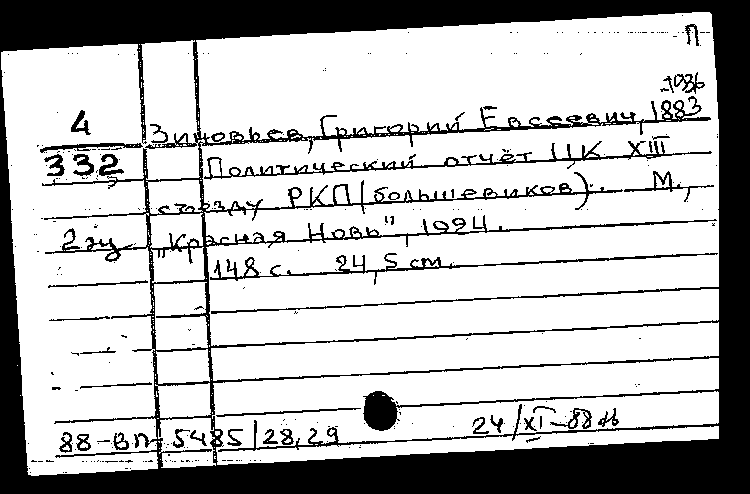 П
-1936
4 Зиновьев, Григорий Евсеевич, 1883
332 Политический отчёт ЦК XIII
съезду РКП (большевиков). М.,
2 эк „Красная Новь", 1924.
148 с. 24,5 см.
88-ВП-5485/28,29 24/XI-88